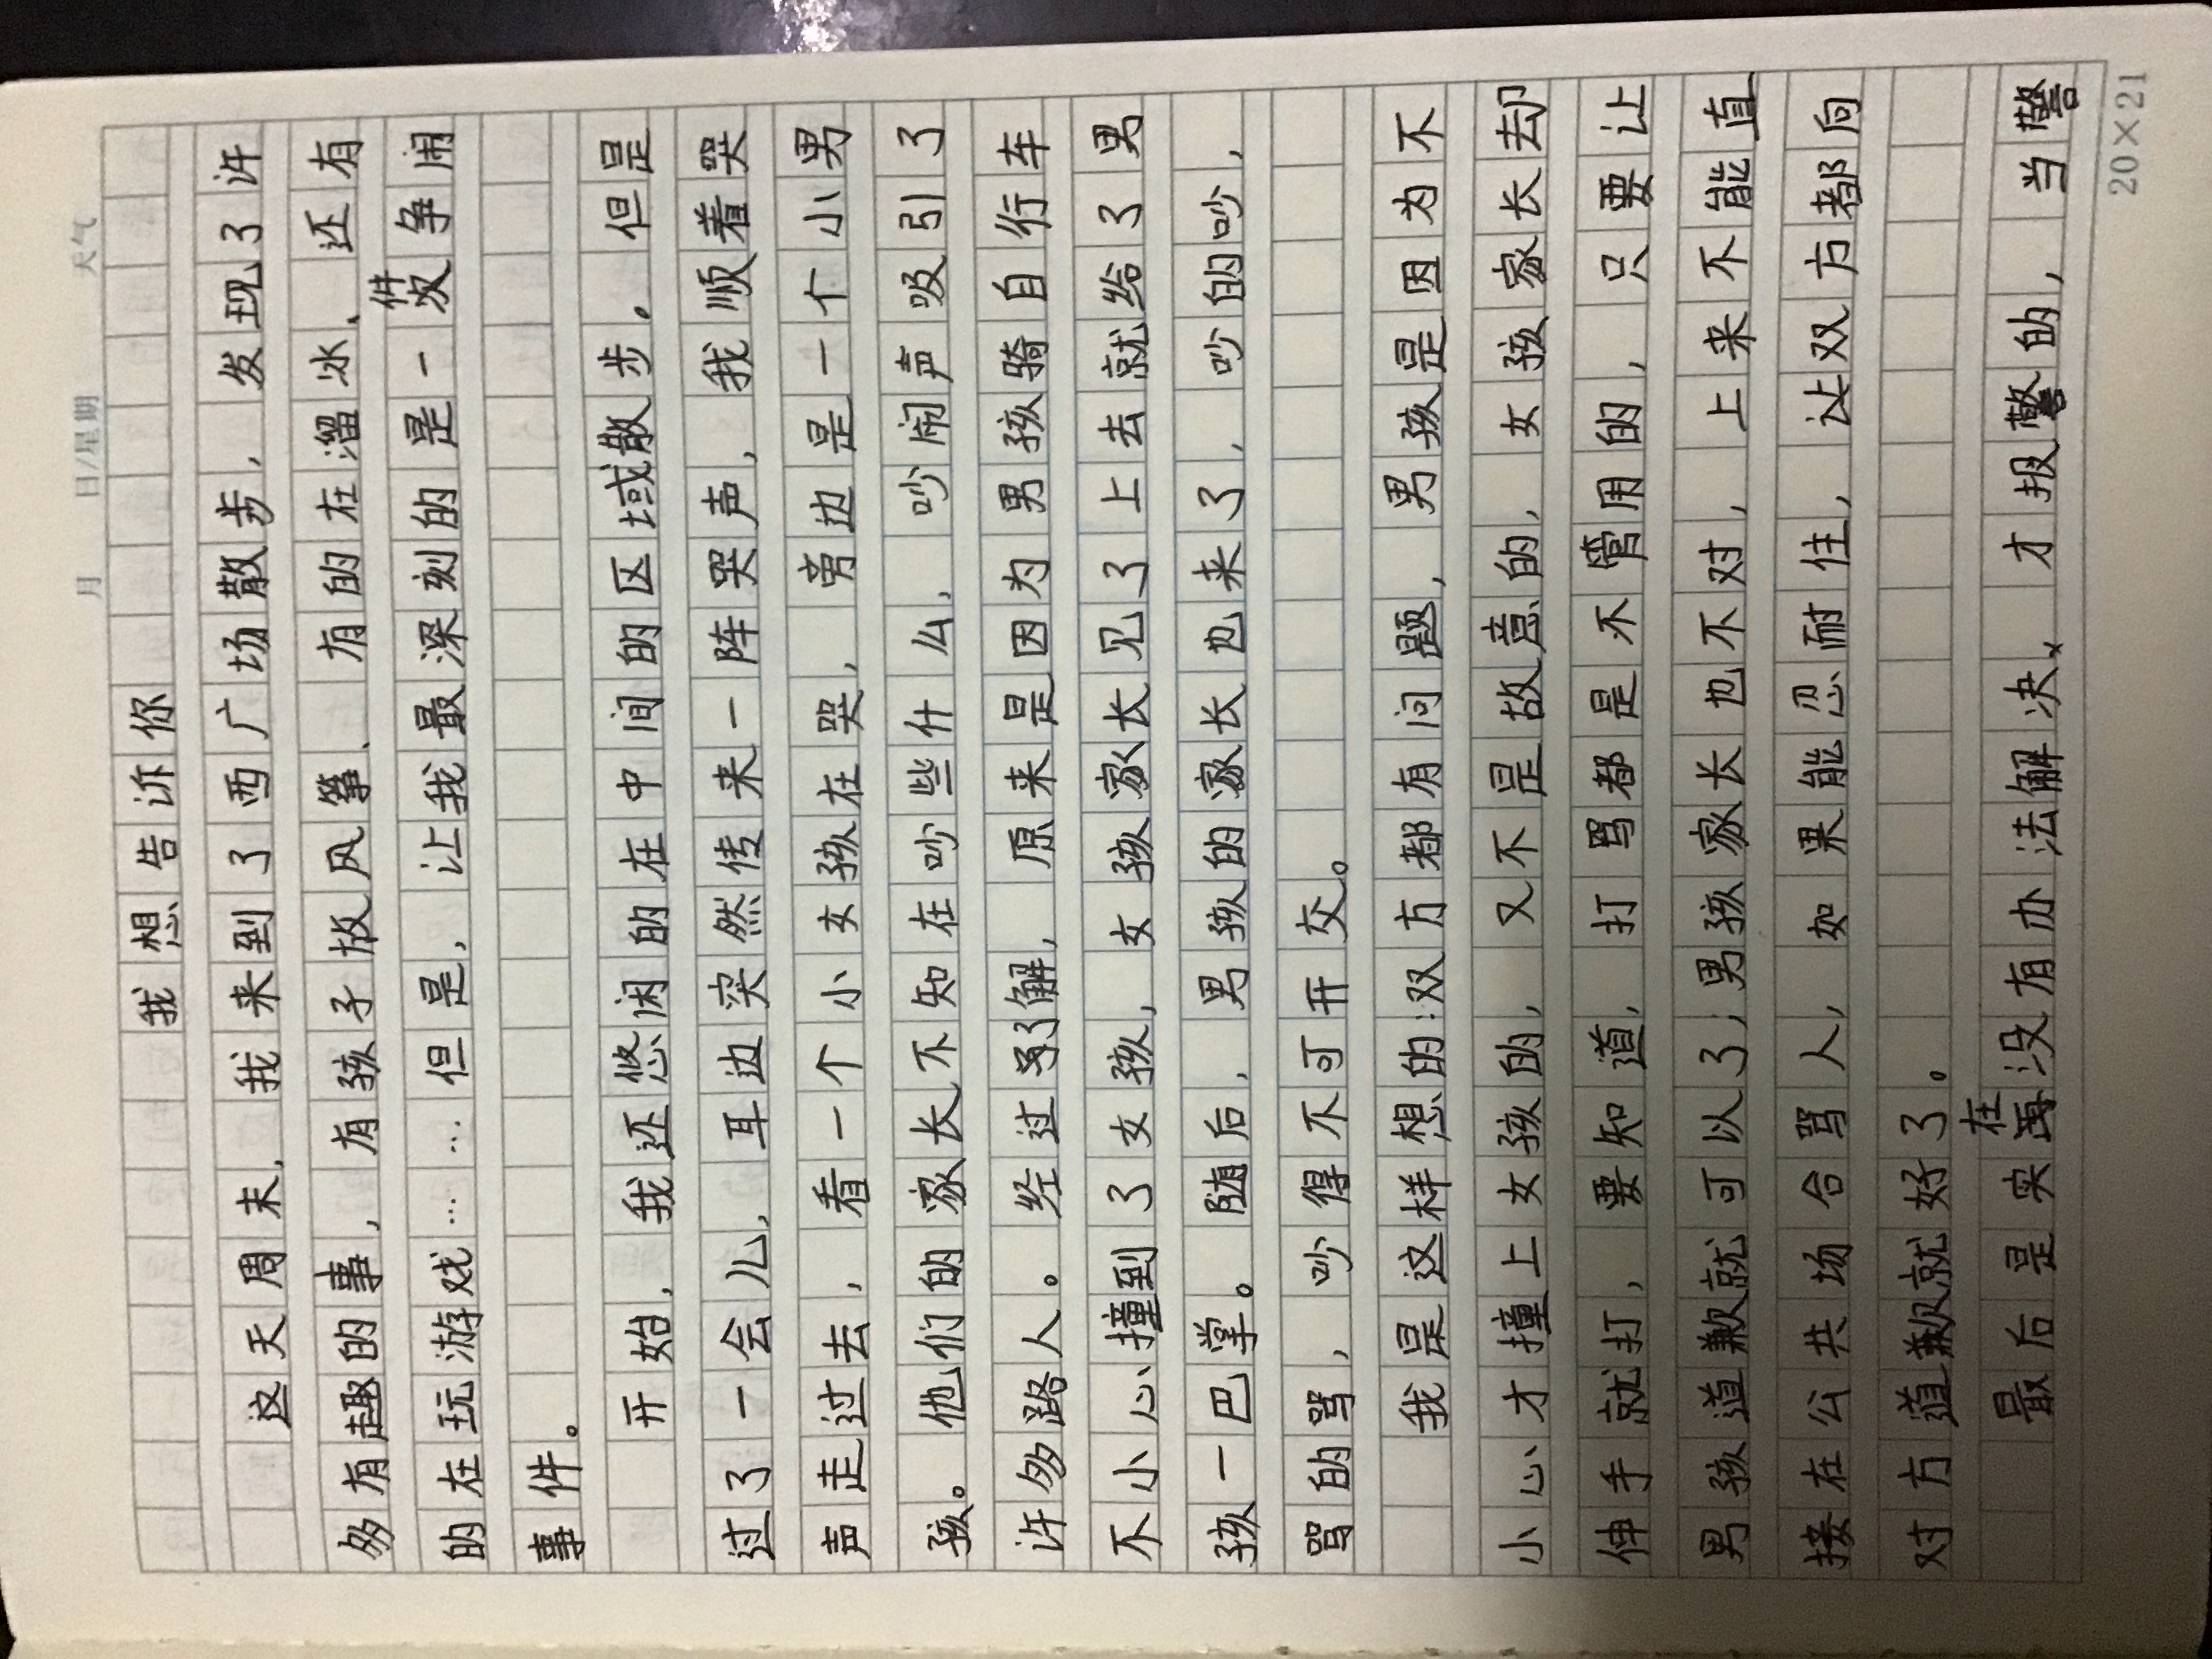 月 日/星期 天气
我想告诉你
这天周末，我来到了西广场散步，发现了许
多有趣的事，有孩子放风筝、有的在溜冰、还有
的在玩游戏……但是，让我最深刻的是一件争闹
事件。
开始，我还悠闲的在中间的区域散步。但是
过了一会儿，耳边突然传来一阵哭声，我顺着哭
声走过去，看一个小女孩在哭，旁边是一个小男
孩。他们的家长不知在吵些什么，吵闹声吸引了
许多路人。经过了解，原来是因为男孩骑自行车
不小心撞到了女孩，女孩家长见了上去就给了男
孩一巴掌。随后，男孩的家长也来了，吵的吵，
骂的骂，吵得不可开交。
我是这样想的:双方都有问题，男孩是因为不
小心才撞上女孩的，又不是故意的，女孩家长却
伸手就打，要知道，打骂都是不管用的，只要让
男孩道歉就可以了；男孩家长也不对，上来不能直
接在公共场合骂人，如果能忍耐住，让双方都向
对方道歉就好了。
最后是实在没有办法解决，才报警的，当警
20×21